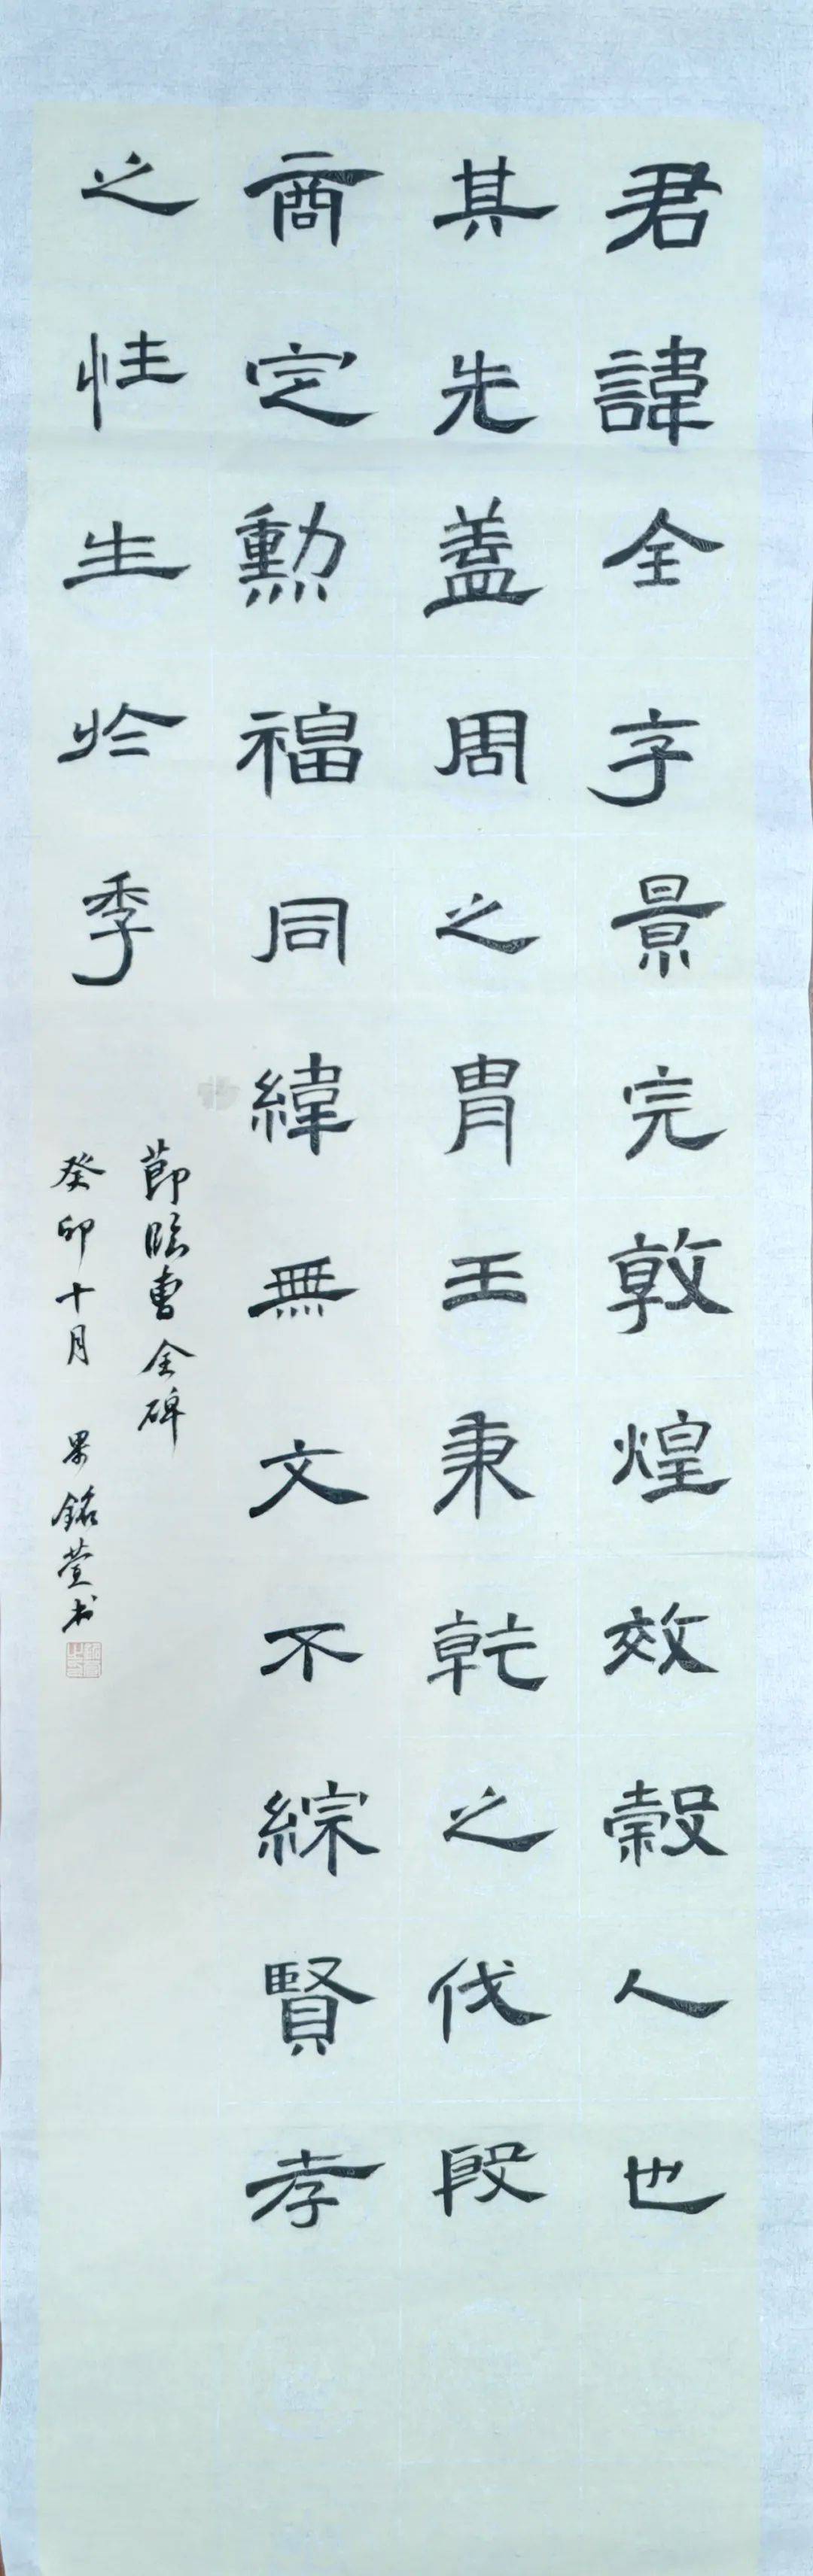 君諱全字景完敦煌效穀人也
其先蓋周之胄王秉乾之伐殷
商定勳福同緯無文不綜賢孝
之性生於季
節臨曹全碑
癸卯十月 銘萱书